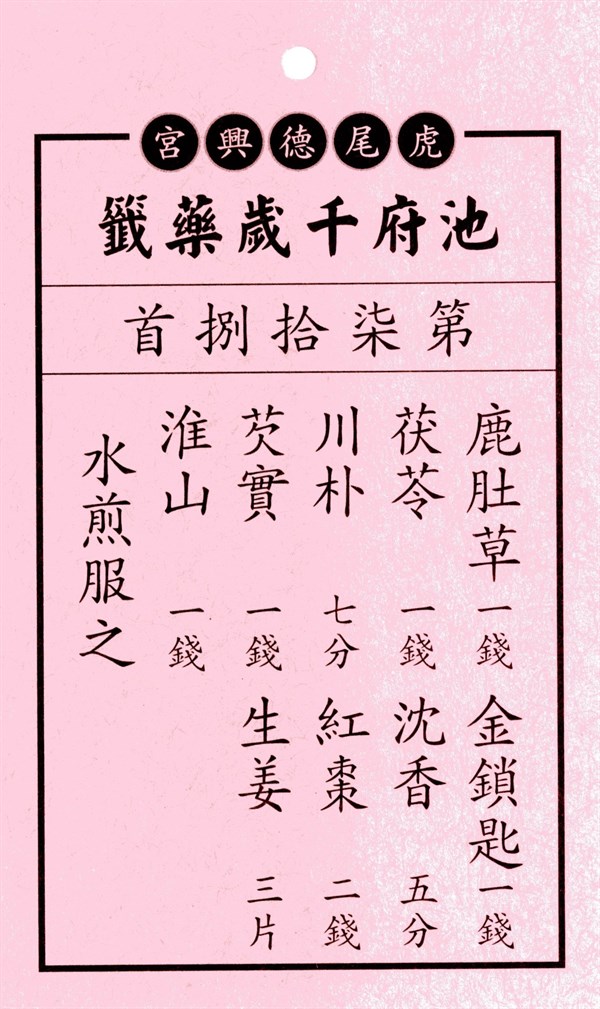 虎尾德興宮
池府千歲藥籤
第柒拾捌首
鹿肚草 一錢 金鎖匙 一錢
茯苓 一錢 沈香 五分
川朴 七分 紅棗 二錢
芡實 一錢 生姜 三片
淮山 一錢
水煎服之